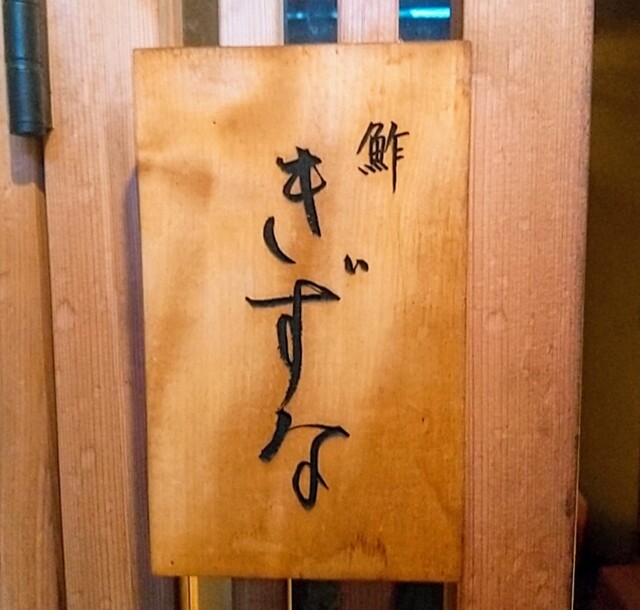 鮓
きずな